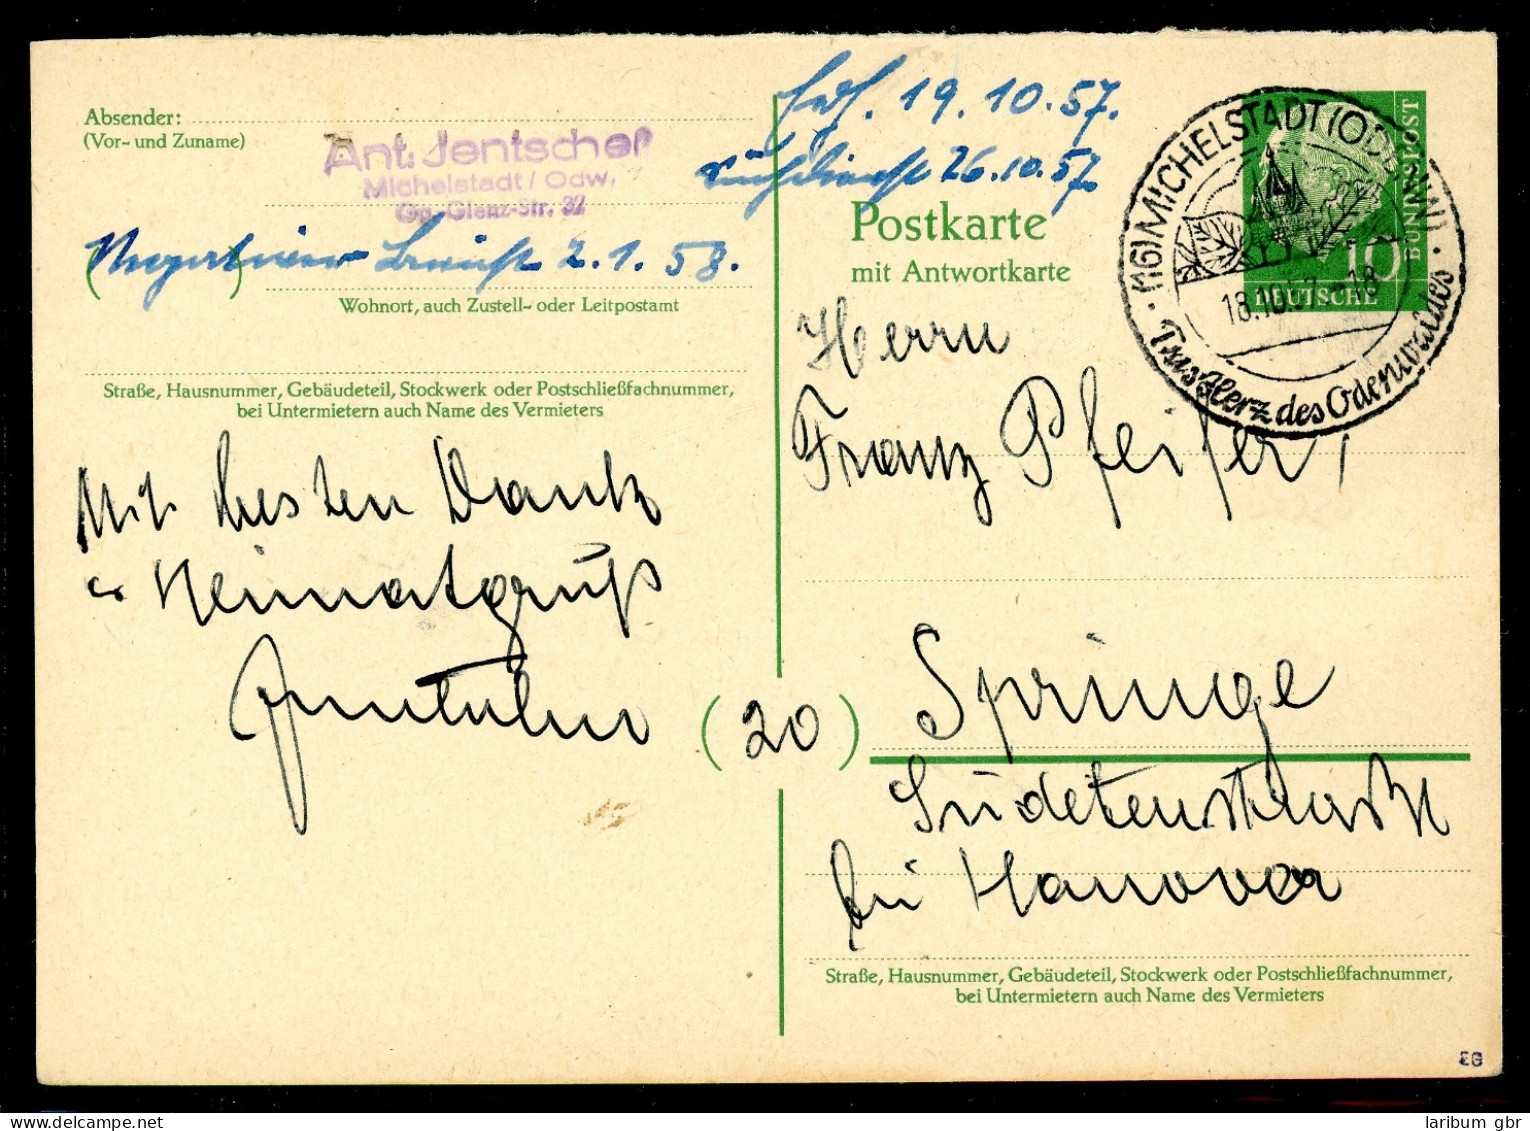 Absender:
(Vor- und Zuname)
Ant. Jentschef
Michelstadt / Odw.
Gg.-Glenz-Str. 32
2.1.58.
Wohnort, auch Zustell- oder Leitpostamt
Straße, Hausnummer, Gebäudeteil, Stockwerk oder Postschließfachnummer,
bei Untermietern auch Name des Vermieters
Mit besten Dank
u. Heimatgruß
19.10.57.
26.10.57.
Postkarte
mit Antwortkarte
(16) MICHELSTADT (ODENW)
18.10.57.-18
Das Herz des Odenwaldes
10
DEUTSCHE
BUNDESPOST
Herrn
Franz Pfeifer,
(20) Springe
Sudetenstraße
bei Hanover
Straße, Hausnummer, Gebäudeteil, Stockwerk oder Postschließfachnummer,
bei Untermietern auch Name des Vermieters
EG
laribum gbr